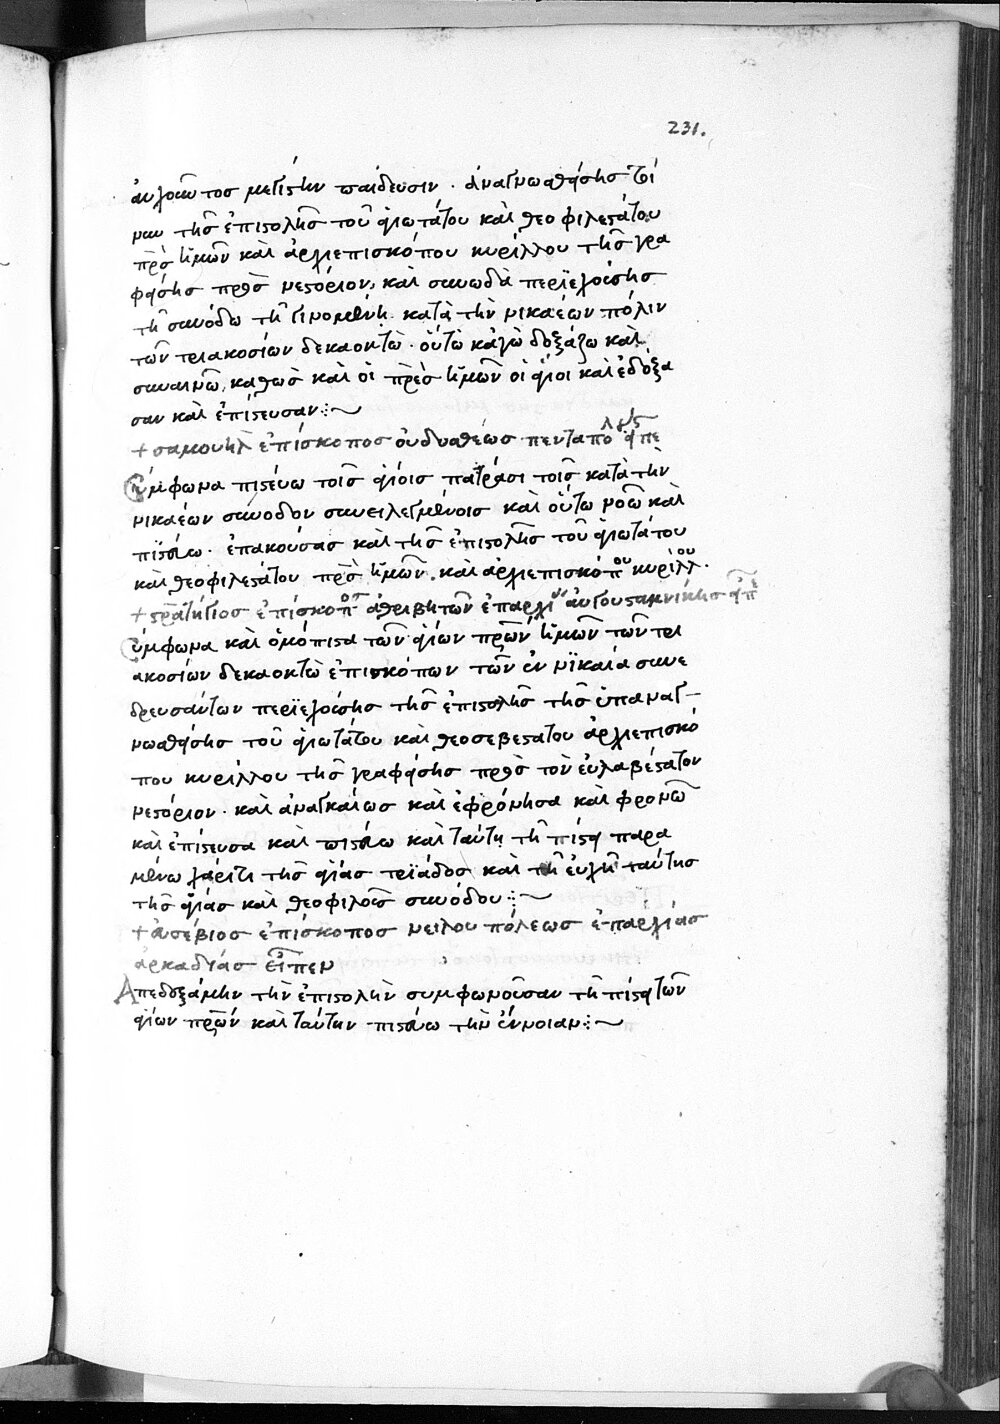 231.
αὐχοῦντος μεγίστην παίδευσιν. ἀναγνωσθείσης τοί
νυν τῆς ἐπιστολῆς τοῦ ἁγιωτάτου καὶ θεοφιλεστάτου
πρς ἡμῶν καὶ ἀρχιεπισκόπου κυρίλλου τῆς γρα
φείσης πρὸς νεστόριον, καὶ συνωδὰ περιεχούσης
τῆ συνόδω τῆ γινομένη κατὰ τὴν νικαέων πόλιν
τῶν τριακοσίων δεκαοκτώ. οὕτω κἀγὼ δοξάζω καὶ
συναινῶ, καθὼς καὶ οἱ πρες ἡμῶν οἱ ἅγιοι καὶ ἐδόξα
σαν καὶ ἐπίστευσαν
+ σαμουὴλ ἐπίσκοπος δυσθέως πενταπο εἶπε
Σύμφωνα πιστεύω τοῖς ἁγίοις πατράσι τοῖς κατὰ τὴν
νικαέων σύνοδον συνειλεγμένοις καὶ οὕτω νοῶ καὶ
πιστεύω. ἐπακούσας καὶ τῆς ἐπιστολῆς τοῦ ἁγιωτάτου
καὶ θεοφιλεστάτου πρς ἡμῶν, καὶ ἀρχιεπισκόπου κυρίλλου.
+ στρατήγιος ἐπίσκοπος ἀθριβητῶν ἐπαρχι αὐγουσταμνίκης εἶπε
Σύμφωνα καὶ ὁμόπιστα τῶν ἁγίων πρων ἡμῶν τῶν τρι
ακοσίων δεκαοκτὼ ἐπισκόπων τῶν ἐν νικαία συνε
δρευσάντων περιεχούσης τῆς ἐπιστολῆς τῆς ὑπαναγ-
νωσθείσης τοῦ ἁγιωτάτου καὶ θεοσεβεστάτου ἀρχιεπισκό
που κυρίλλου τῆς γραφείσης πρὸς τὸν εὐλαβέστατον
νεστόριον. καὶ ἀναγκαίως καὶ ἐφρόνησα καὶ φρονῶ
καὶ ἐπίστευσα καὶ πιστεύω καὶ ταύτη τῆ πίστει παρα
μένω χάριτι τῆς ἁγίας τριάδος καὶ τῆ εὐχῆ ταύτης
τῆς ἁγίας καὶ θεοφιλοῦς συνόδου
+ εὐσέβιος ἐπίσκοπος νείλου πόλεως ἐπαρχίας
ἀρκαδίας εἶπεν
Ἀπεδεξάμην τὴν ἐπιστολὴν συμφωνοῦσαν τῆ πίστει τῶν
ἁγίων πρων καὶ ταύτην πιστεύω τὴν ἔννοιαν